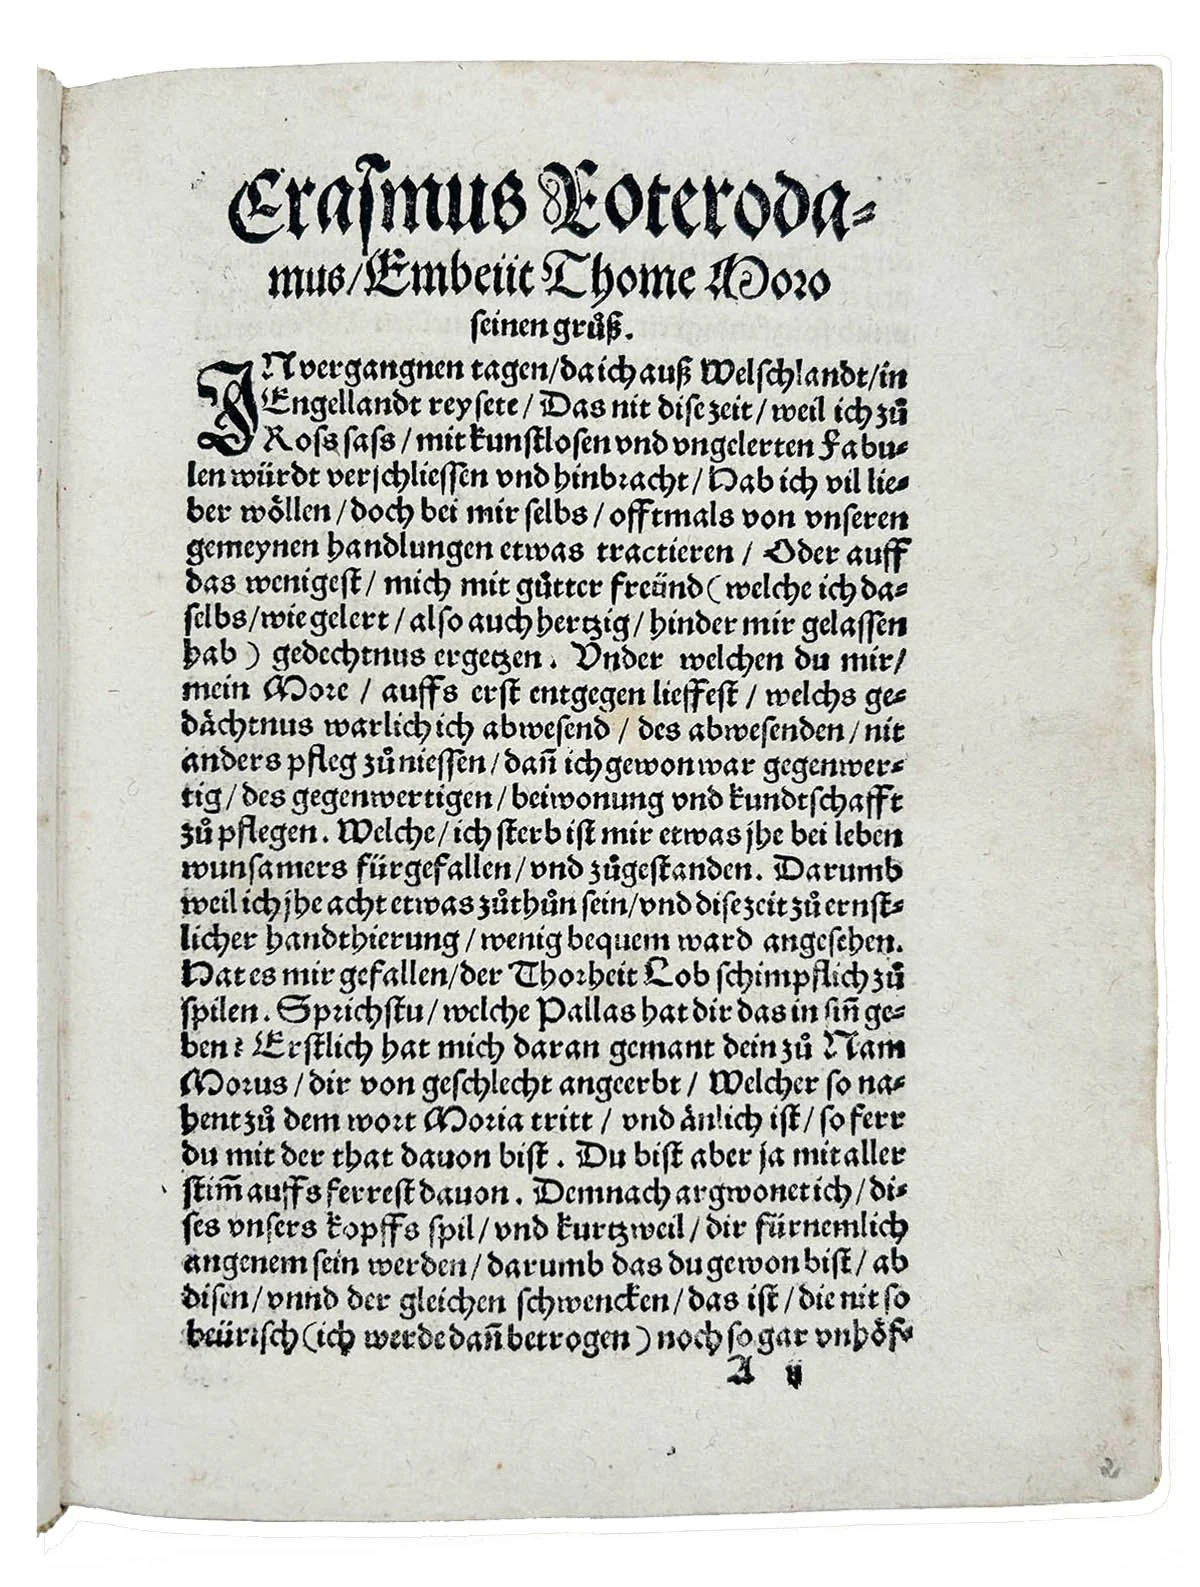 Erasmus Roteroda⸗
mus/Embeüt Thome Moro
seinen grůß.
IN vergangnen tagen/da ich auß Welschlandt/in
Engellandt reysete/Das nit dise zeit/weil ich zů
Ross sass/mit kunstlosen vnd vngelerten Fabu⸗
len würdt verschliessen vnd hinbracht/Hab ich vil lie⸗
ber wöllen/doch bei mir selbs/offtmals von vnseren
gemeynen handlungen etwas tractieren/Oder auff
das wenigest/mich mit gůtter freünd (welche ich da⸗
selbs/wie gelert/also auch hertzig/hinder mir gelassen
hab) gedechtnus ergetzen. Vnder welchen du mir/
mein More/auffs erst entgegen lieffest/welchs ge⸗
dächtnus warlich ich abwesend/des abwesenden/nit
anders pfleg zů niessen/dañ ich gewon war gegenwer⸗
tig/des gegenwertigen/beiwonung vnd kundtschafft
zů pflegen. Welche/ich sterb ist mir etwas jhe bei leben
wunsamers fürgefallen/vnd zůgestanden. Darumb
weil ich jhe acht etwas zůthůn sein/vnd dise zeit zů ernst⸗
licher handthierung/wenig bequem ward angesehen.
Hat es mir gefallen/der Thorheit Lob schimpflich zů
spilen. Sprichstu/welche Pallas hat dir das in siñ ge⸗
ben? Erstlich hat mich daran gemant dein zů Nam
Morus/dir von geschlecht angeerbt/Welcher so na⸗
hent zů dem wort Moria tritt/vnd änlich ist/so ferr
du mit der that dauon bist. Du bist aber ja mit aller
stim̃ auffs ferrest dauon. Demnach argwonet ich/di⸗
ses vnsers kopffs spil/vnd kurtzweil/dir fürnemlich
angenem sein werden/darumb das du gewon bist/ab
disen/vnnd der gleichen schwencken/das ist/die nit so
beürisch (ich werde dañ betrogen) noch so gar vnhöf⸗
A ij
2